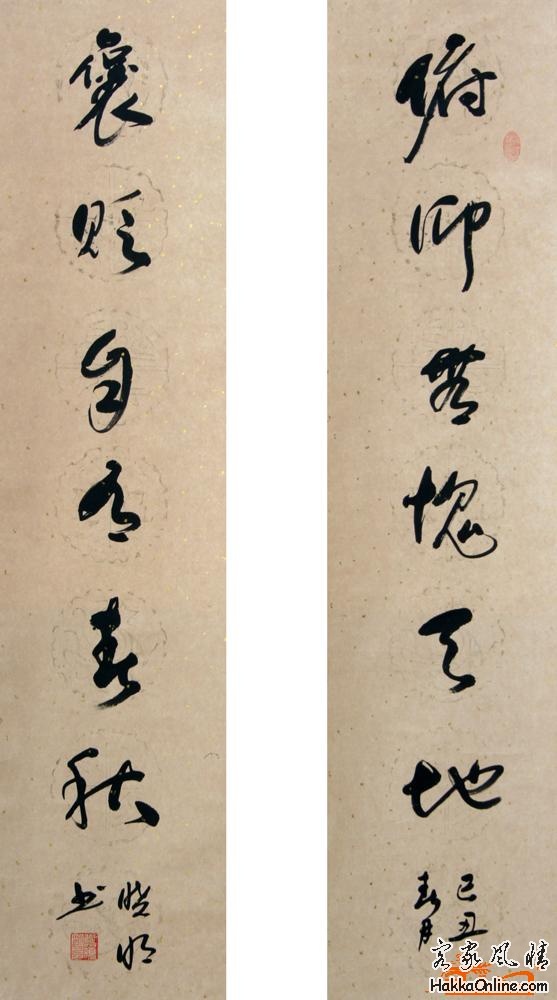 俯仰無愧天地
己丑
春月
褒貶自有春秋
曉明
书
客家風情
HakkaOnline.com